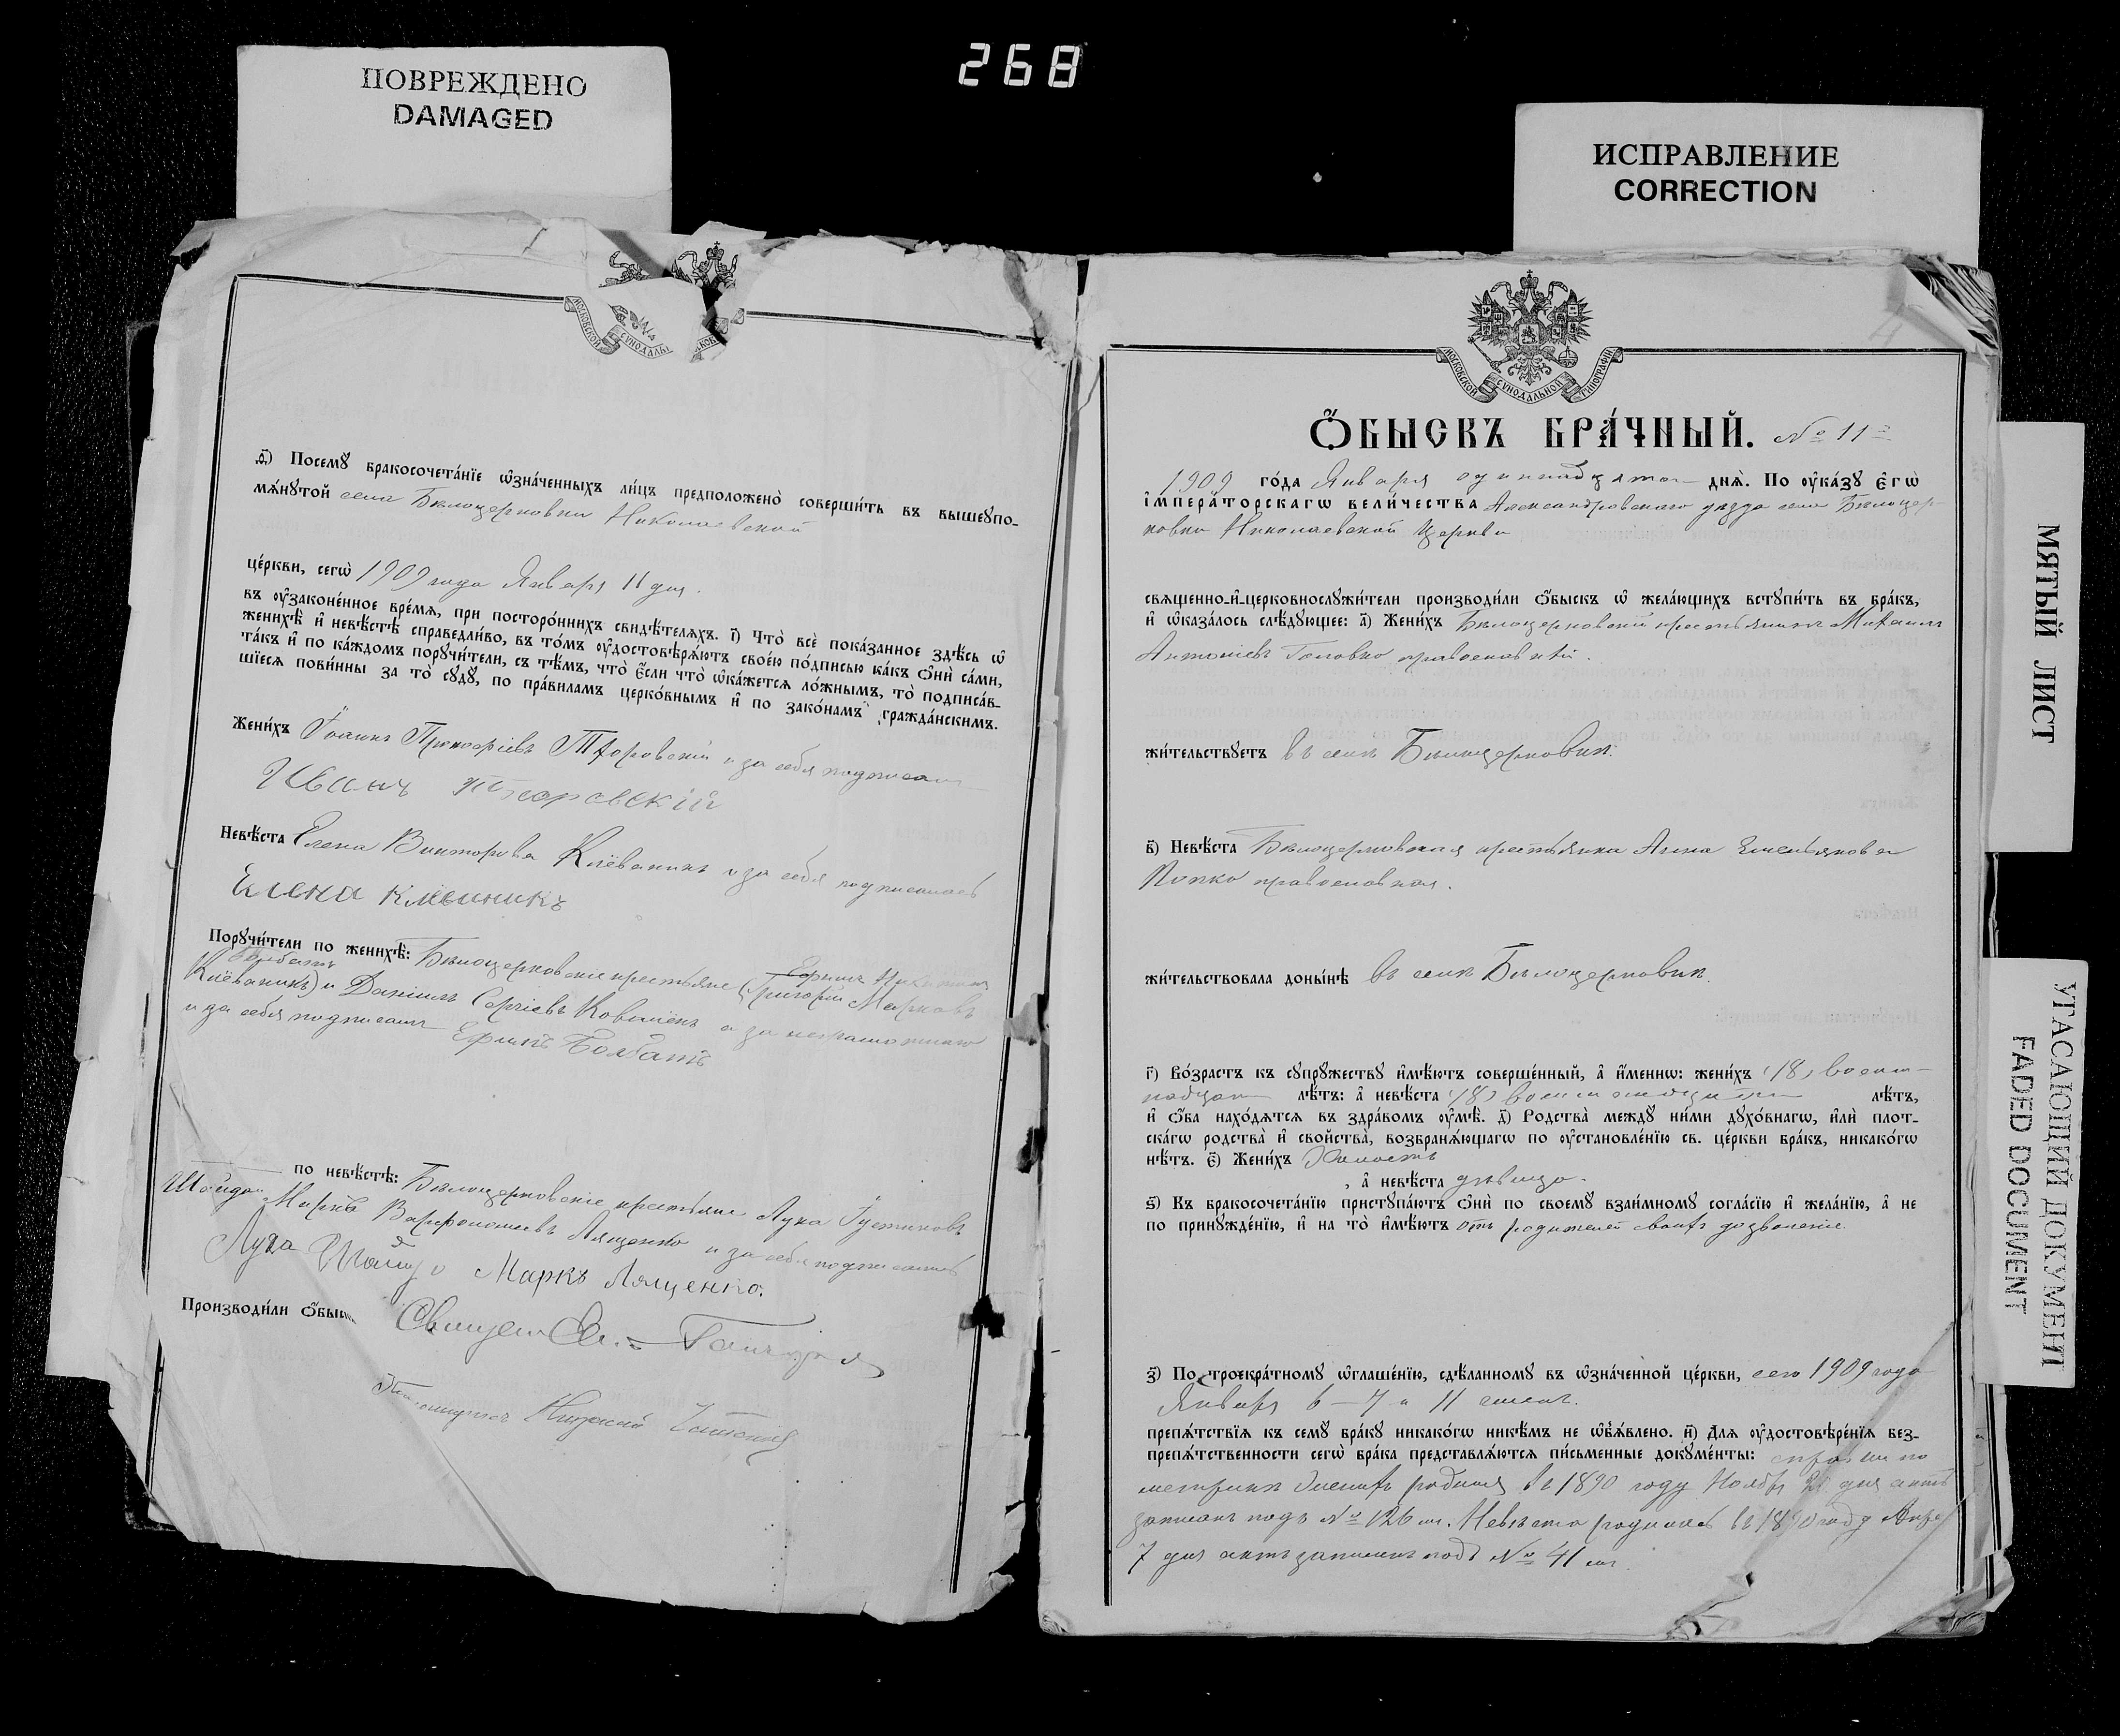 268
ПОВРЕЖДЕНО
DAMAGED
ИСПРАВЛЕНИЕ
CORRECTION
МЯТЫЙ ЛИСТ
УГАСАЮЩИЙ ДОКУМЕНТ
FADED DOCUMENT
МОСКОВСКОЙ
ѳ҃) Посемꙋ бракосочета́нїе ѡ҆зна́ченныхъ ли́цъ предположено̀ соверши́ть въ вышеꙋпо-
мѧ́нꙋтой села Бѣлоцерковки Николаевской
це́ркви, сегѡ̀ 1909 года Января 11 дня.
въ ᲂу҆зако́ненное вре́мѧ, при посторо́ннихъ свидѣ́телѧхъ. і҃) Что̀ всѐ пока́занное здѣ́сь ѡ҆
женихѣ̀ и҆ невѣ́стѣ справедли́во, въ то́мъ ᲂу҆достовѣрѧ́ютъ свое́ю по́дписью ка́къ ѻ҆нѝ са́ми,
та́къ и҆ по ка́ждомъ порꙋчи́тели, съ тѣ́мъ, что̀ є҆́сли что̀ ѡ҆ка́жетсѧ ло́жнымъ, то̀ подписа́в-
шїесѧ пови́нны за то̀ сꙋдꙋ̀, по пра́виламъ церко́внымъ и҆ по зако́намъ гражда́нскимъ.
Жени́хъ Іоаннъ Прокофіевъ и за себя подписался
Иванъ
Невѣ́ста Елена Викторова Клёваникъ и за себя подписалась
Елена Клеваникъ
Порꙋчи́тели по женихѣ̀: Бѣлоцерковскіе крестьяне (Григорій Марковъ
Клёваникъ) и Даніилъ Сергіевъ а за неграмотнаго
и за себя подписался Ефимъ Болбатъ
по невѣ́стѣ: Бѣлоцерковскіе крестьяне Лука Іустиновъ
Шайда Маркъ Варфоломеевъ Лященко и за себя подписались
Лука Шайда Маркъ Лященко.
Производи́ли ѻ҆́быс
Священ
МОСКОВСКОЙ СѴНОДАЛЬНОЙ ТИПОГРАФІИ
Ѻ҆́БЫСКЪ БРА́ЧНЫЙ. № 11
1909 го́да Января одиннадцатого днѧ̀. По ᲂу҆ка́зꙋ є҆гѡ̀
і҆мпера́торскагѡ вели́чества Александровскаго уѣзда села Бѣлоцер-
ковки Николаевской церкви
свѧщенно-и҆-церковнослꙋжи́тели производи́ли ѻ҆́быскъ ѡ҆ жела́ющихъ встꙋпи́ть въ бра́къ,
и҆ ѡ҆каза́лось слѣ́дꙋющее: а҃) Жени́хъ Бѣлоцерковскій крестьянинъ Михаилъ
Антоніевъ Головко православный.
жи́тельствꙋетъ въ селѣ Бѣлоцерковкѣ.
в҃) Невѣ́ста Бѣлоцерковская крестьянка Анна Емельянова
Попко православная.
жи́тельствовала доны́нѣ въ селѣ Бѣлоцерковкѣ.
г҃) Во́зрастъ къ сꙋпрꙋ́жествꙋ и҆мѣ́ютъ соверше́нный, а҆ и҆́меннѡ: жени́хъ (18) восем-
надцать лѣ́тъ: а҆ невѣ́ста (18) восемнадцать лѣ́тъ,
и҆ ѻ҆́ба нахо́дѧтсѧ въ здра́вомъ ᲂу҆мѣ̀. д҃) Родства̀ междꙋ̀ ни́ми дꙋхо́внагѡ, и҆лѝ плот-
ска́гѡ родства̀ и҆ сво́йства̀, возбранѧ́ющагѡ по ᲂу҆становле́нїю св. це́ркви бра́къ, никако́гѡ
нѣ́тъ. є҃) Жени́хъ Холостъ
, а҆ невѣ́ста дѣвица.
ѕ҃) Къ бракосочета́нїю пристꙋпа́ютъ ѻ҆нѝ по своемꙋ̀ взаи́мномꙋ согла́сїю и҆ жела́нїю, а҆ не
по принꙋжде́нїю, и҆ на то̀ и҆мѣ́ютъ отъ родителей своихъ дозволеніе.
з҃) По троекра́тномꙋ ѡ҆глаше́нїю, сдѣ́ланномꙋ въ ѡ҆зна́ченной це́ркви, сего 1909 года
Января 6 – 7 и 11 числъ.
препѧ́тствїѧ къ семꙋ̀ бра́кꙋ никако́гѡ никѣ́мъ не ѡ҆б̾ѧ́влено. и҃) Длѧ ᲂу҆достовѣре́нїѧ без-
препѧ́тственности сегѡ̀ бра́ка представлѧ́ютсѧ пи́сьменные докꙋме́нты: справки по
метрикѣ Женихъ родился въ 1890 году Ноября дня актъ
записанъ подъ № 126 м. Невѣста родилась въ 1890 году Апрѣ
7 дня актъ записанъ подъ № 41